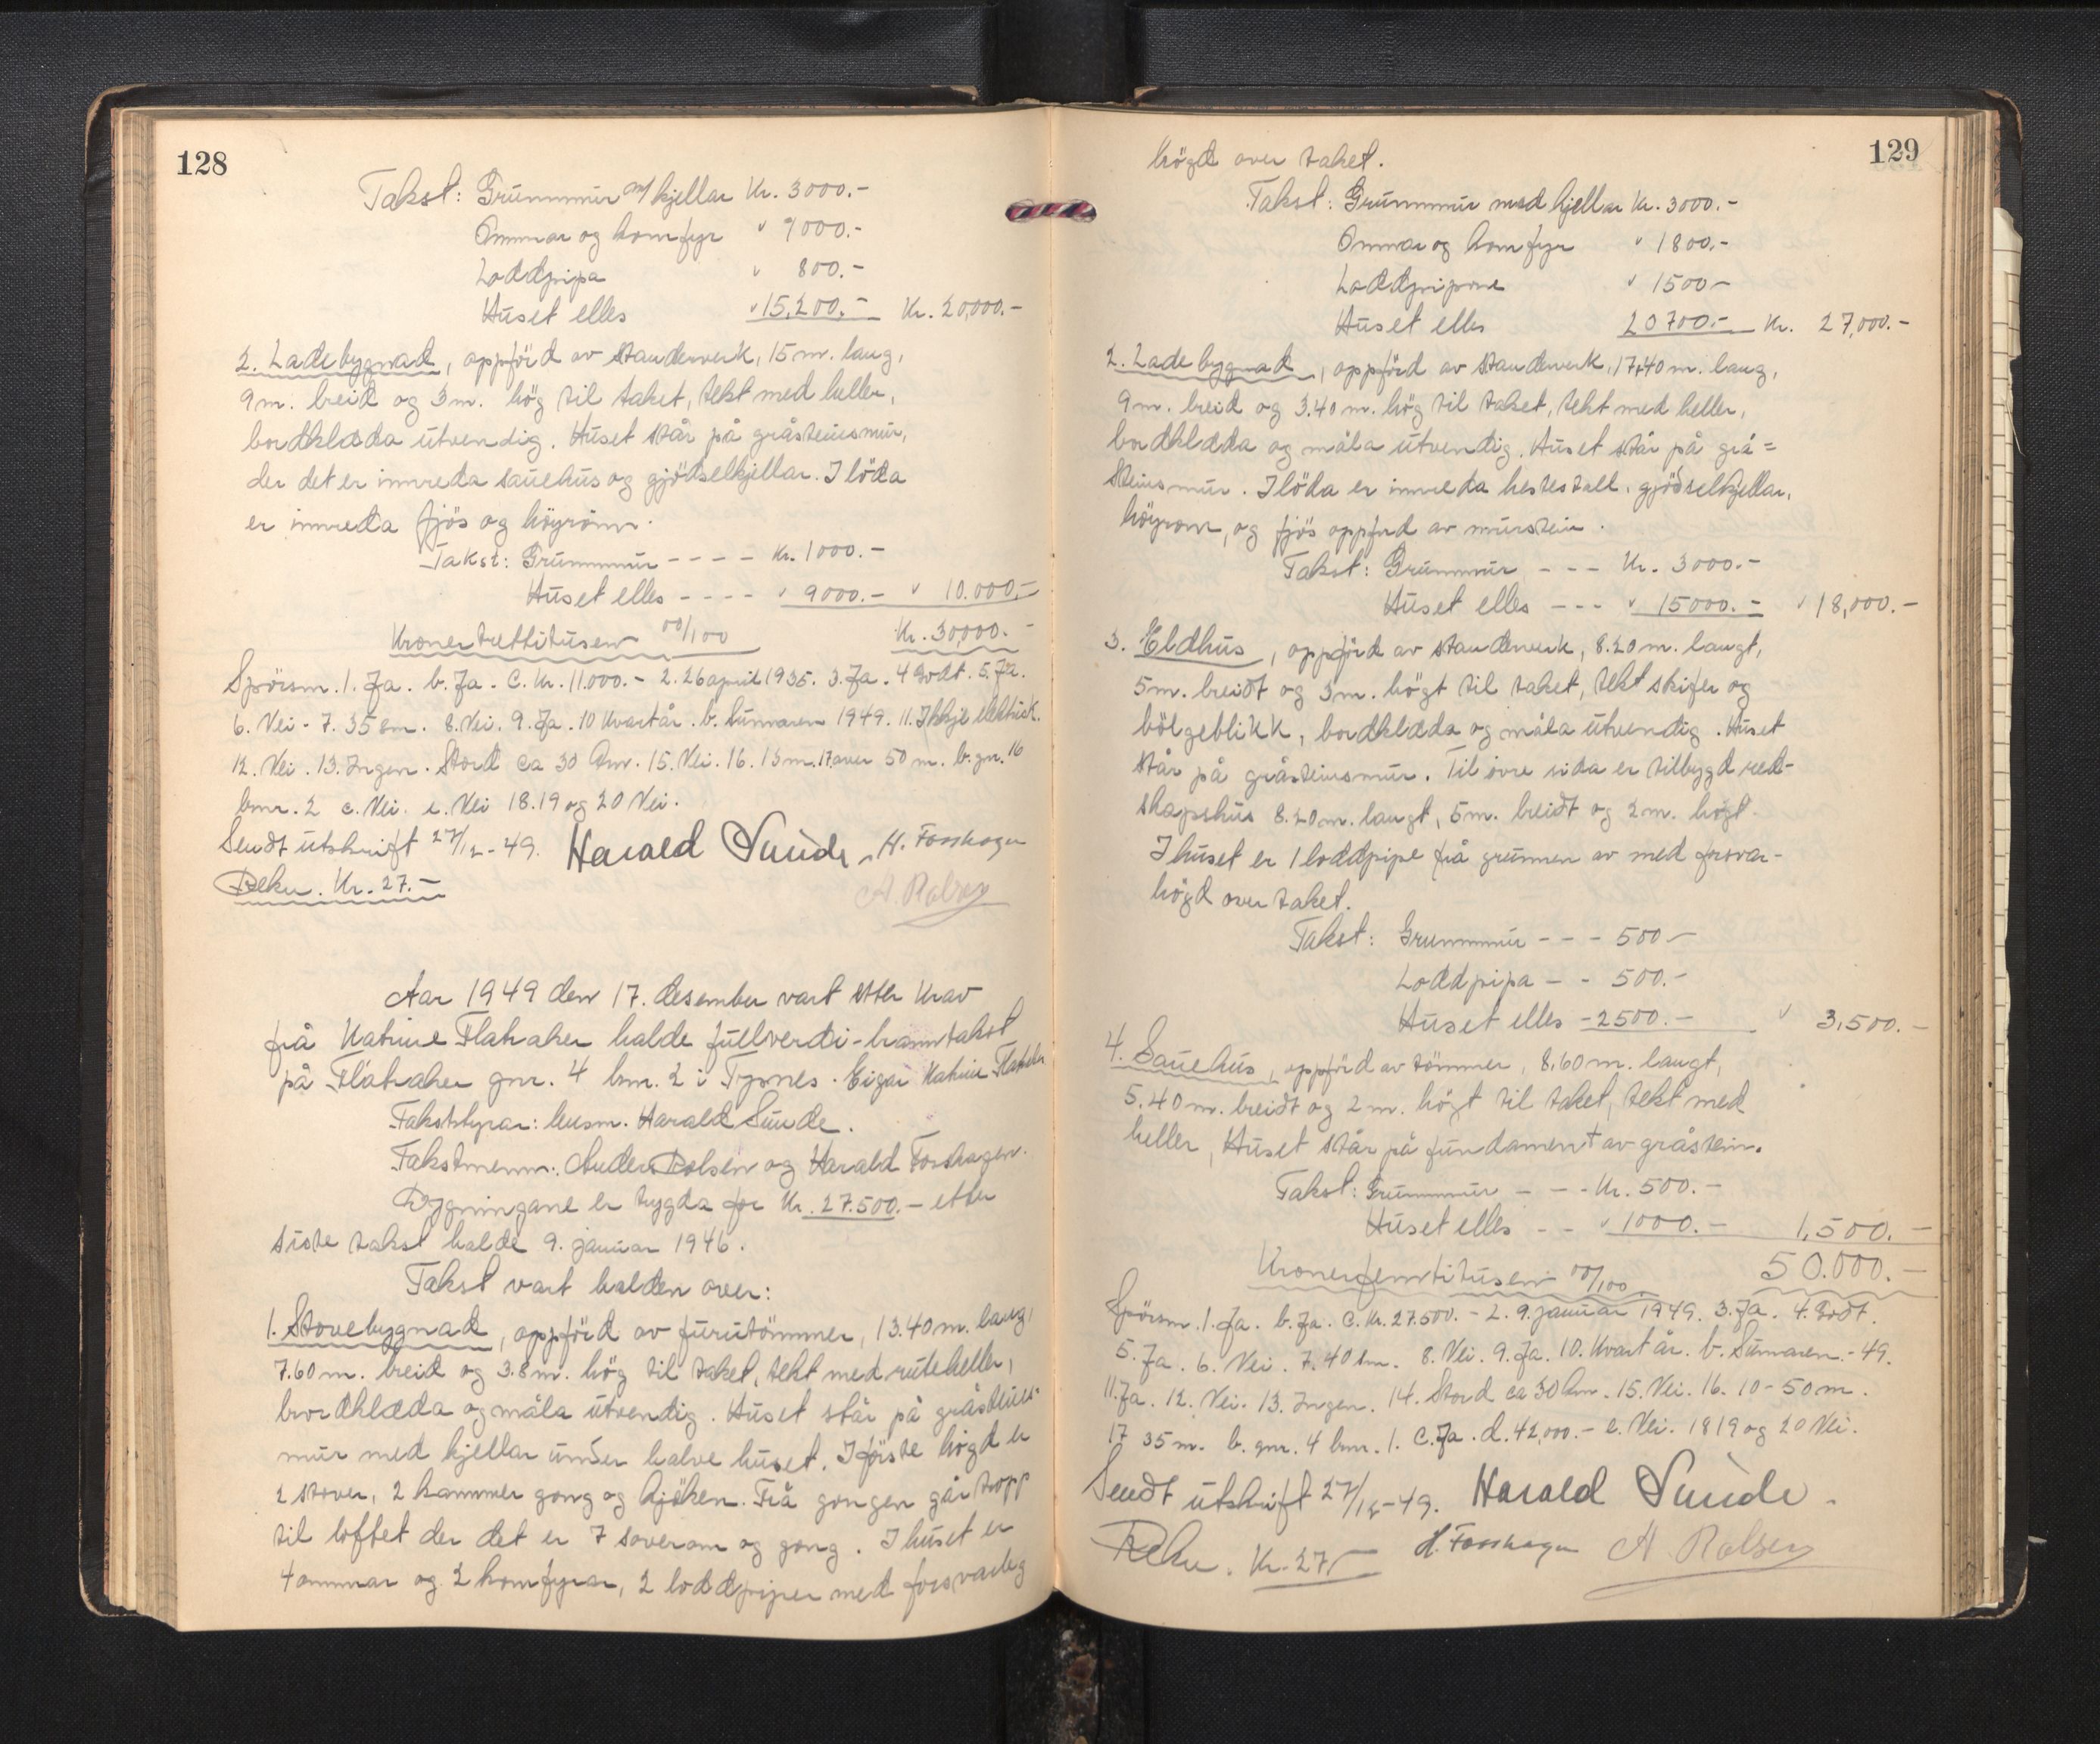 128
Takst: Grunnmur m/ kjellar Kr. 3000.-
Ommar og komfyr " 1000.-
Loddpipa " 800.-
Huset elles " 15,200.- Kr. 20,000.-
2. Ladebygnad, oppförd av standerverk, 15 m. lang,
9 m. breid og 3 m. hög til taket, tekt med heller,
bordklæda utvendig. Huset står på gråsteinsmur,
der det er innreda sauehus og gjödselkjellar. I löda
er innreda fjös og höyromm.
Takst: Grunnmur - - - - Kr. 1000.-
Huset elles - - - - " 9000.- " 10.000.-
Kronertrettitusen 00/100 Kr. 30,000.-
Spörsm. 1. Ja. b. Ja. C. Kr. 11.000.- 2. 26 april 1935. 3. Ja. 4 Godt. 5. Ja.
6. Nei - 7. 35 km. 8. Nei. 9. Ja. 10 Kvart år. b. Sumaren 1949. 11. Ikkje elektrisk.
12. Nei. 13. Ingen. Stord ca 30 km. 15. Nei. 16. 13 m. 17. over 50 m. b. gnr. 16
bnr. 2 c. Nei. e. Nei 18. 19 og 20 Nei.
Sendt utskrift 27/12-49. Harald Sunde, H. Fosshagen
Rekn. Kr. 27.- A. Rolsen
Aar 1949 den 17. desember vart etter krav
frå Katrine Flatraker halde fullverdi-branntakst
på Flatraker gnr. 4 bnr. 2 i Tysnes. Eigar Katrine Flatraker
Takststyrar: lensm. Harald Sunde.
Takstmenn: Anders Rolsen og Harald Fosshagen.
Bygningane er trygda for Kr. 27.500.- etter
siste takst halde 9. januar 1946.
Takst vart halden over:
1. Stovebygnad, oppförd av furutömmer, 13.40 m. lang,
7.60 m. breid og 3.8 m. hög til taket, tekt med ruteheller,
bordklæda og måla utvendig. Huset står på gråsteins-
mur med kjellar under halve huset. I förste högd er
2 stover, 2 kammer gong og kjöken. Frå gongen går tropp
til loftet der det er 7 soverom og gong. I huset er
4 ommar og 2 komfyrar, 2 loddpiper med forsvarleg
129
högd over taket.
Takst: Grunnmur med kjellar Kr. 3000.-
Ommar og komfyr " 1800.-
Loddpipone " 1500-
Huset elles 20700.- Kr. 27,000.-
2. Ladebygnad, oppförd av standerverk, 17,40 m. lang,
9 m. breid og 3.40 m. hög til taket, tekt med heller,
bordklæda og måla utvendig. Huset står på grå=
steinsmur. I löda er innreda hestestall, gjödselkjellar,
höyrom, og fjös oppförd av murstein.
Takst: Grunnmur - - - Kr. 3000.-
Huset elles - - - " 15000.- " 18,000.-
3. Eldhus, oppförd av standerverk, 8.20 m. langt,
5 m. breidt og 3 m. högt til taket, tekt skifer og
bölgeblikk, bordklæda og måla utvendig. Huset
står på gråsteinsmur. Til övre sida er tilbygd red-
skapshus 8.20 m. langt, 5 m. breidt og 2 m. högt.
I huset er 1 loddpipe frå grunnen av med forsvar-
högd over taket.
Takst: Grunnmur - - - 500-
Loddpipa - - 500.-
Huset elles - 2500.- " 3,500.-
4. Sauehus, oppförd av tömmer, 8,60 m. langt,
5.40 m. breidt og 2 m. högt til taket, tekt med
heller, Huset står på fundament av gråstein.
Takst: Grunnmur - - - Kr. 500.-
Huset elles - - " 1000.- 1,500.-
Kronerfemtitusen 00/100. 50.000.-
Spörsm. 1. Ja. b. Ja. C. Kr. 27.500.- 2. 9. januar 1949. 3. Ja. 4. Godt.
5. Ja. 6. Nei. 7. 40 km. 8. Nei. 9. Ja. 10. Kvart år. b. Sumaren.-49.
11. Ja. 12. Nei. 13. Ingen. 14. Stord ca 30 km. 15. Nei. 16. 10-50 m.
17 35 m. b. gnr. 4 bnr. 1. C. Ja. d. 42,000.- e. Nei. 18 19 og 20 Nei.
Sendt utskrift 27/12-49. Harald Sunde.
Rekn. Kr. 27.- H. Fosshagen A. Rolsen